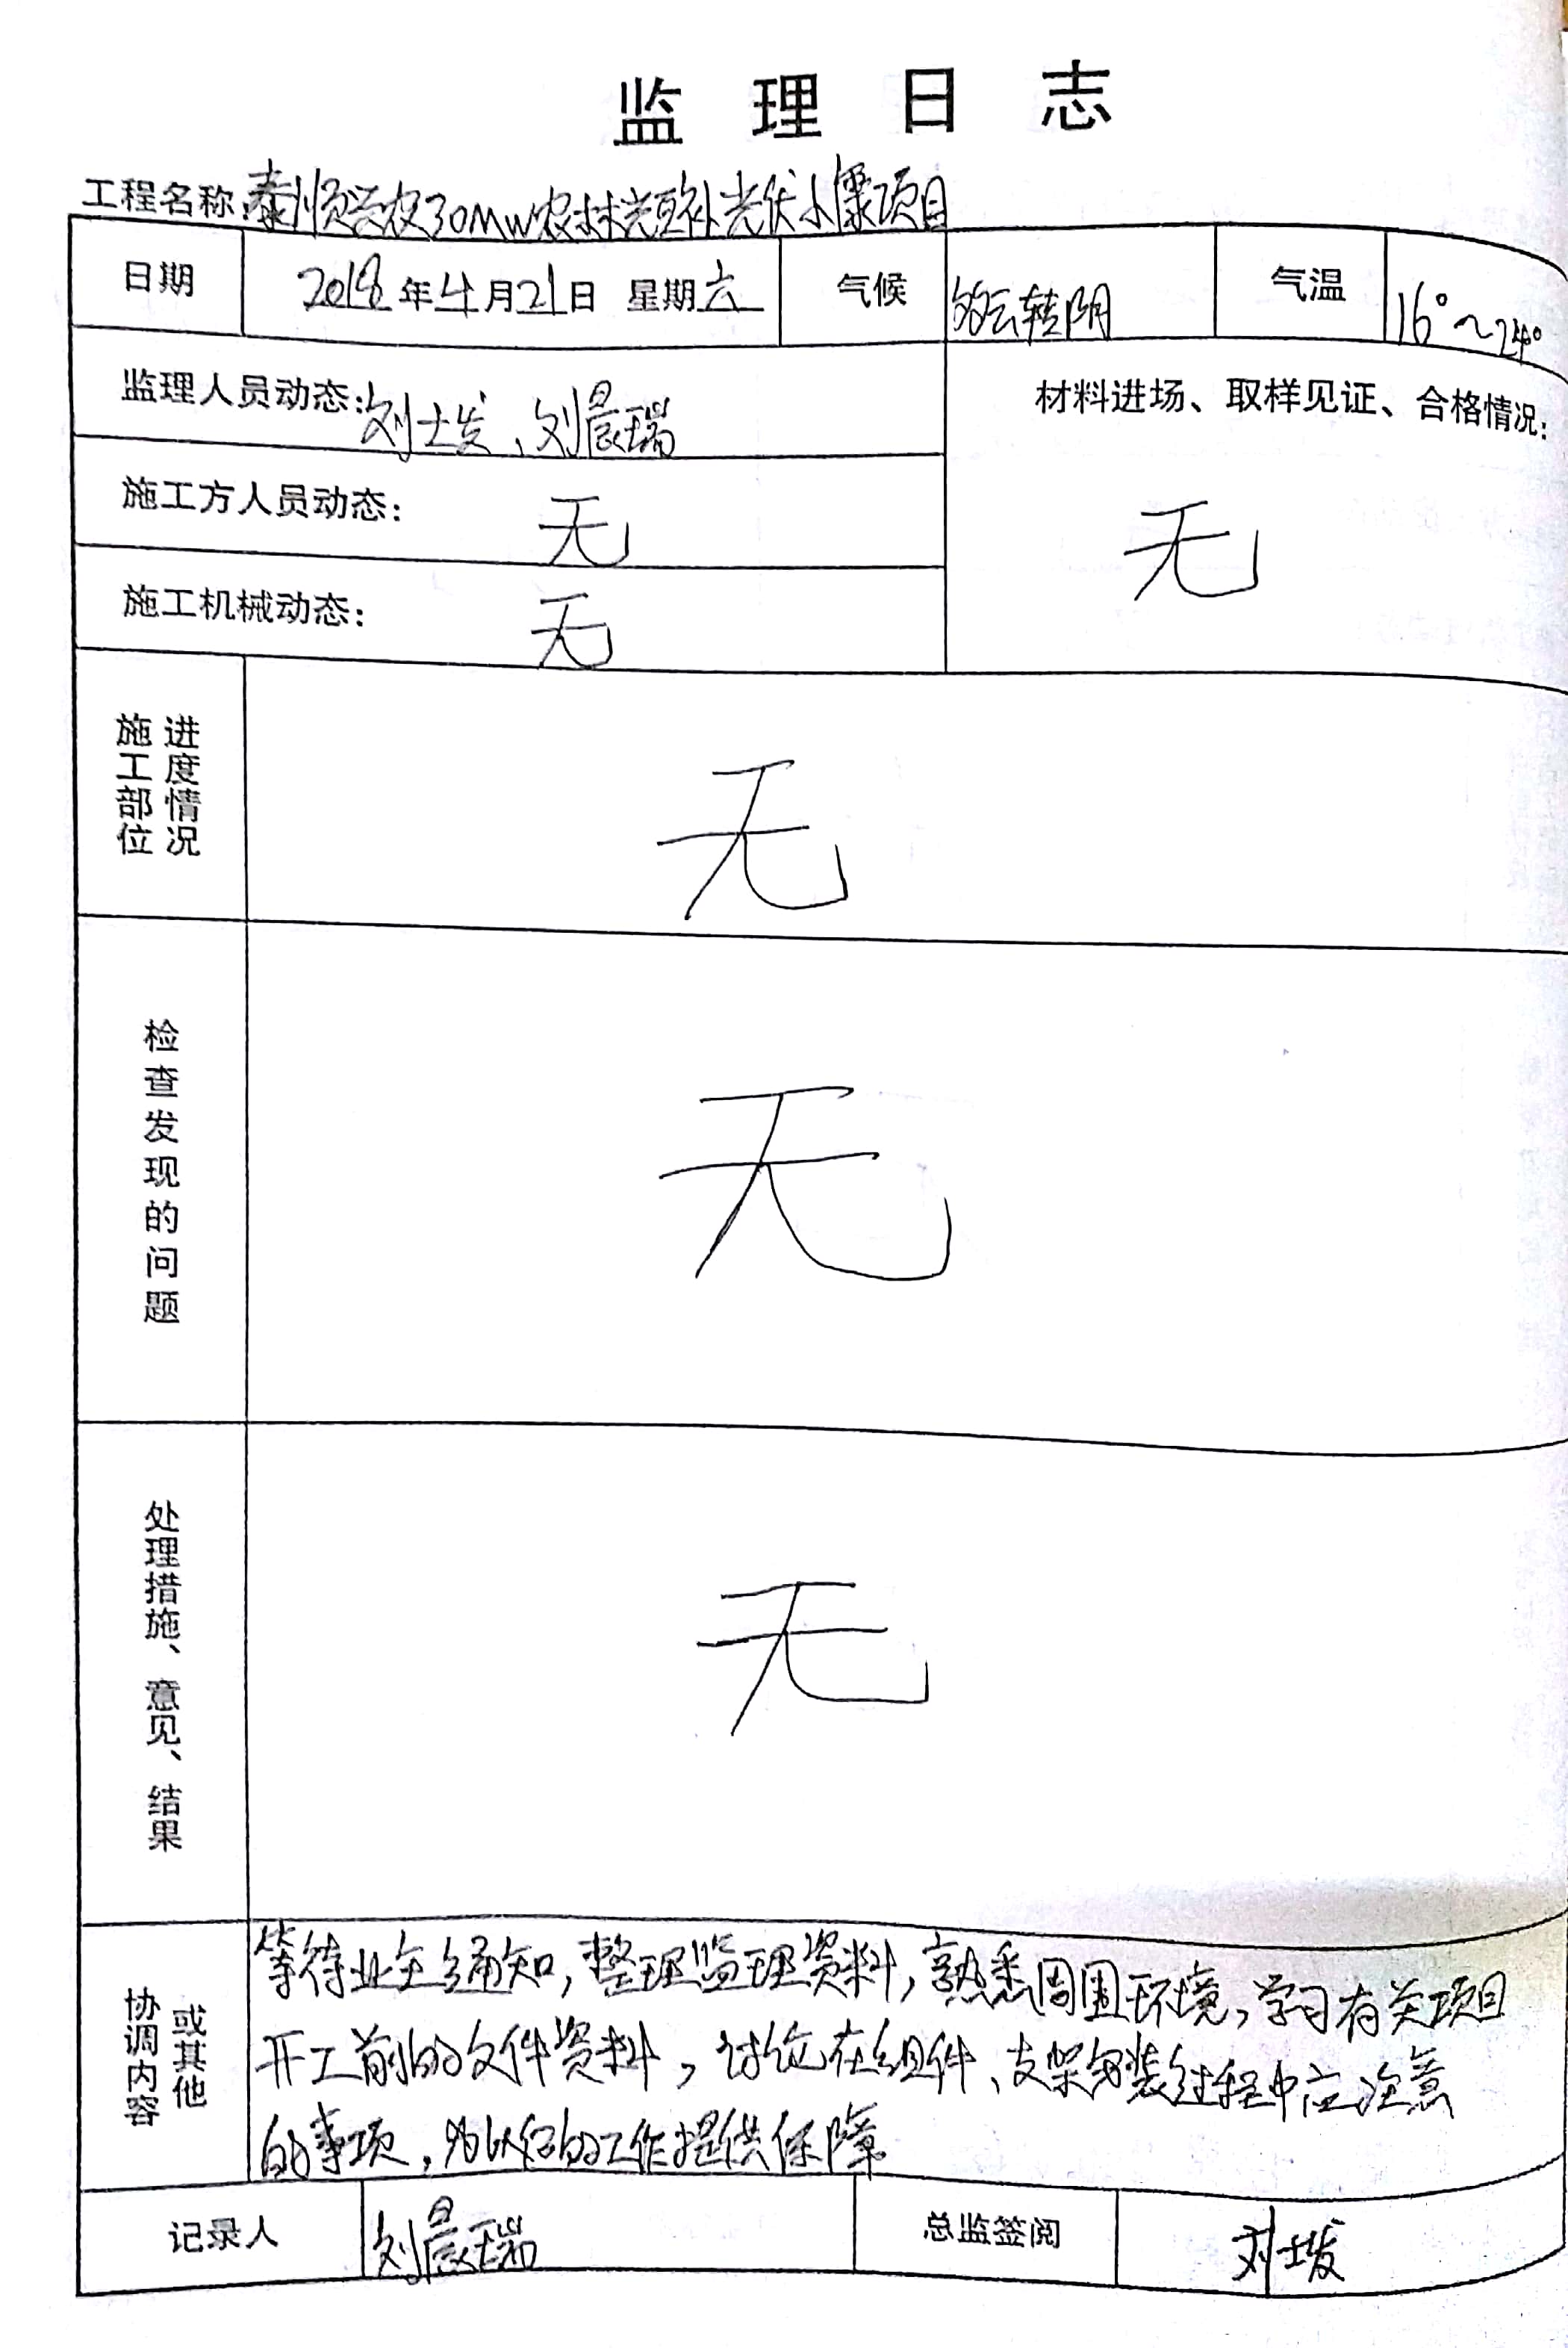 监理日志
工程名称:泰顺兴农30MW农林光互补光伏小镇项目
日期 2018年4月21日 星期六 气候 多云转阴 气温 16°~24°
监理人员动态:刘士发、刘晨瑞
材料进场、取样见证、合格情况:
无
施工方人员动态: 无
施工机械动态: 无
施工部位 进度情况 无
检查发现的问题 无
处理措施、意见、结果 无
协调内容 或其他
等待业主通知,整理监理资料,熟悉周围环境,学习有关项目
开工前的文件资料,讨论在组件、支架安装过程中应注意
的事项,为以后的工作提供保障
记录人 刘晨瑞 总监签阅 刘士发